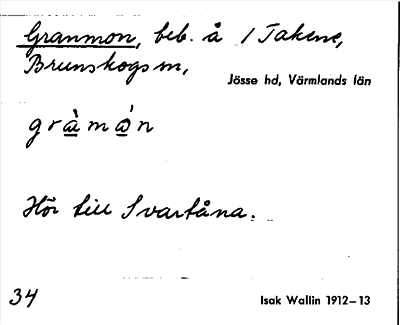 Granmon, beb. å 1 Takene,
Brunskogs sn,
Jösse hd, Värmlands län
gràmón
Hör till Svartåna.
34
Isak Wallin 1912–13